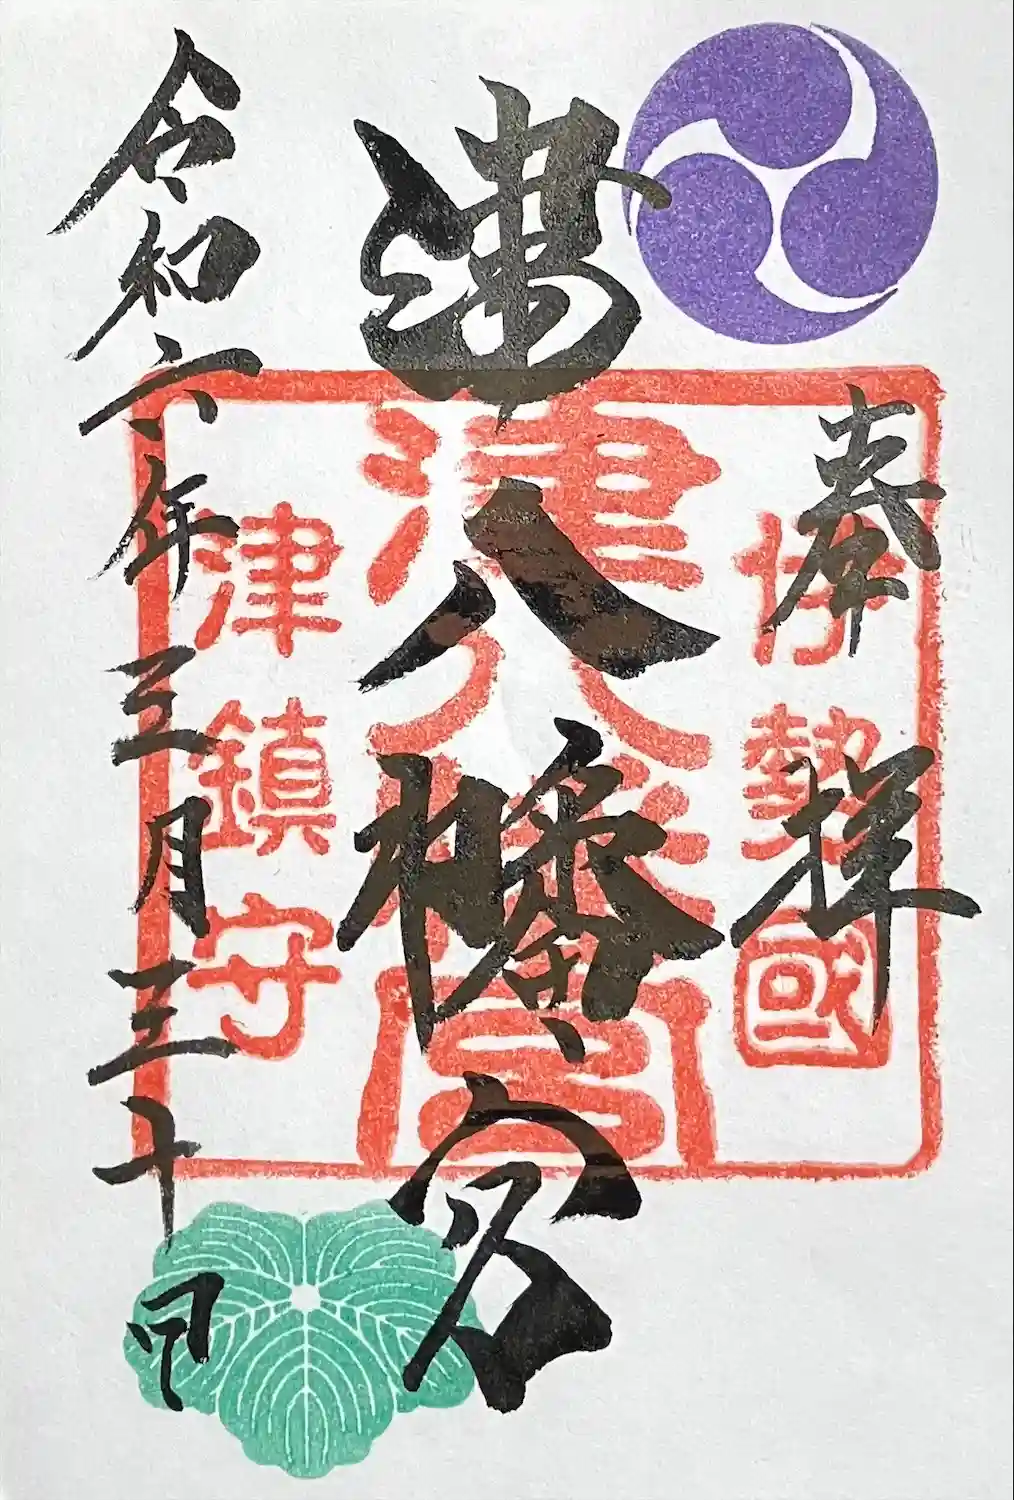 奉拝
津八幡宮
令和六年三月三十日
伊勢國
津八幡宮
津鎮守